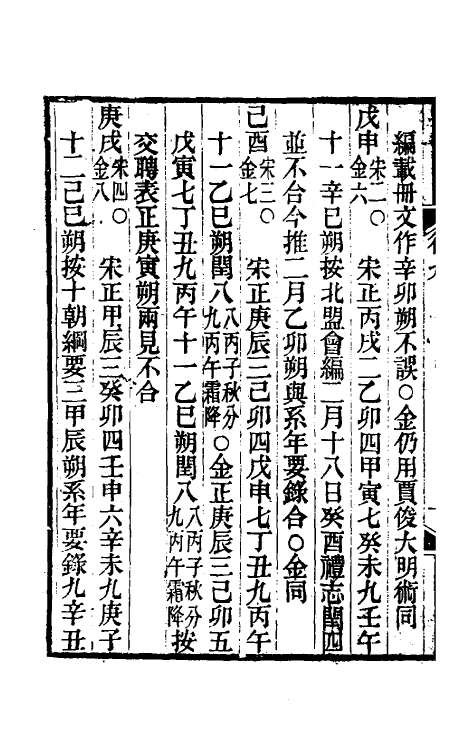 編載冊文作辛卯朔不誤○金仍用賈俊大明術同
戊申宋二金六○　宋正丙戌二乙卯四甲寅七癸未九壬午
十一辛巳朔按北盟會編二月十八日癸酉禮志閏四
並不合今推二月乙卯朔與系年要錄合○金同
己酉宋三金七○　宋正庚辰三己卯四戊申七丁丑九丙午
十一乙巳朔閏八八丙子秋分九丙午霜降○金正庚辰三己卯五
戊寅七丁丑九丙午十一乙巳朔閏八八丙子秋分九丙午霜降按
交聘表正庚寅朔兩見不合
庚戌宋四金八○　宋正甲辰三癸卯四壬申六辛未九庚子
十二己巳朔按十朝綱要三甲辰朔系年要錄九辛丑